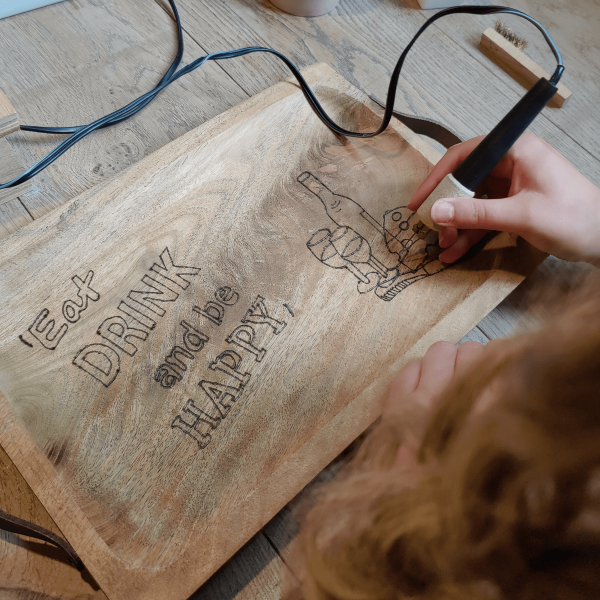 'Eat
DRINK
and be
HAPPY,